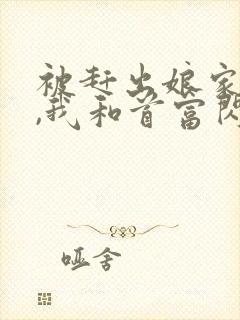 被赶出娘家
,我和首富闪
哑舍